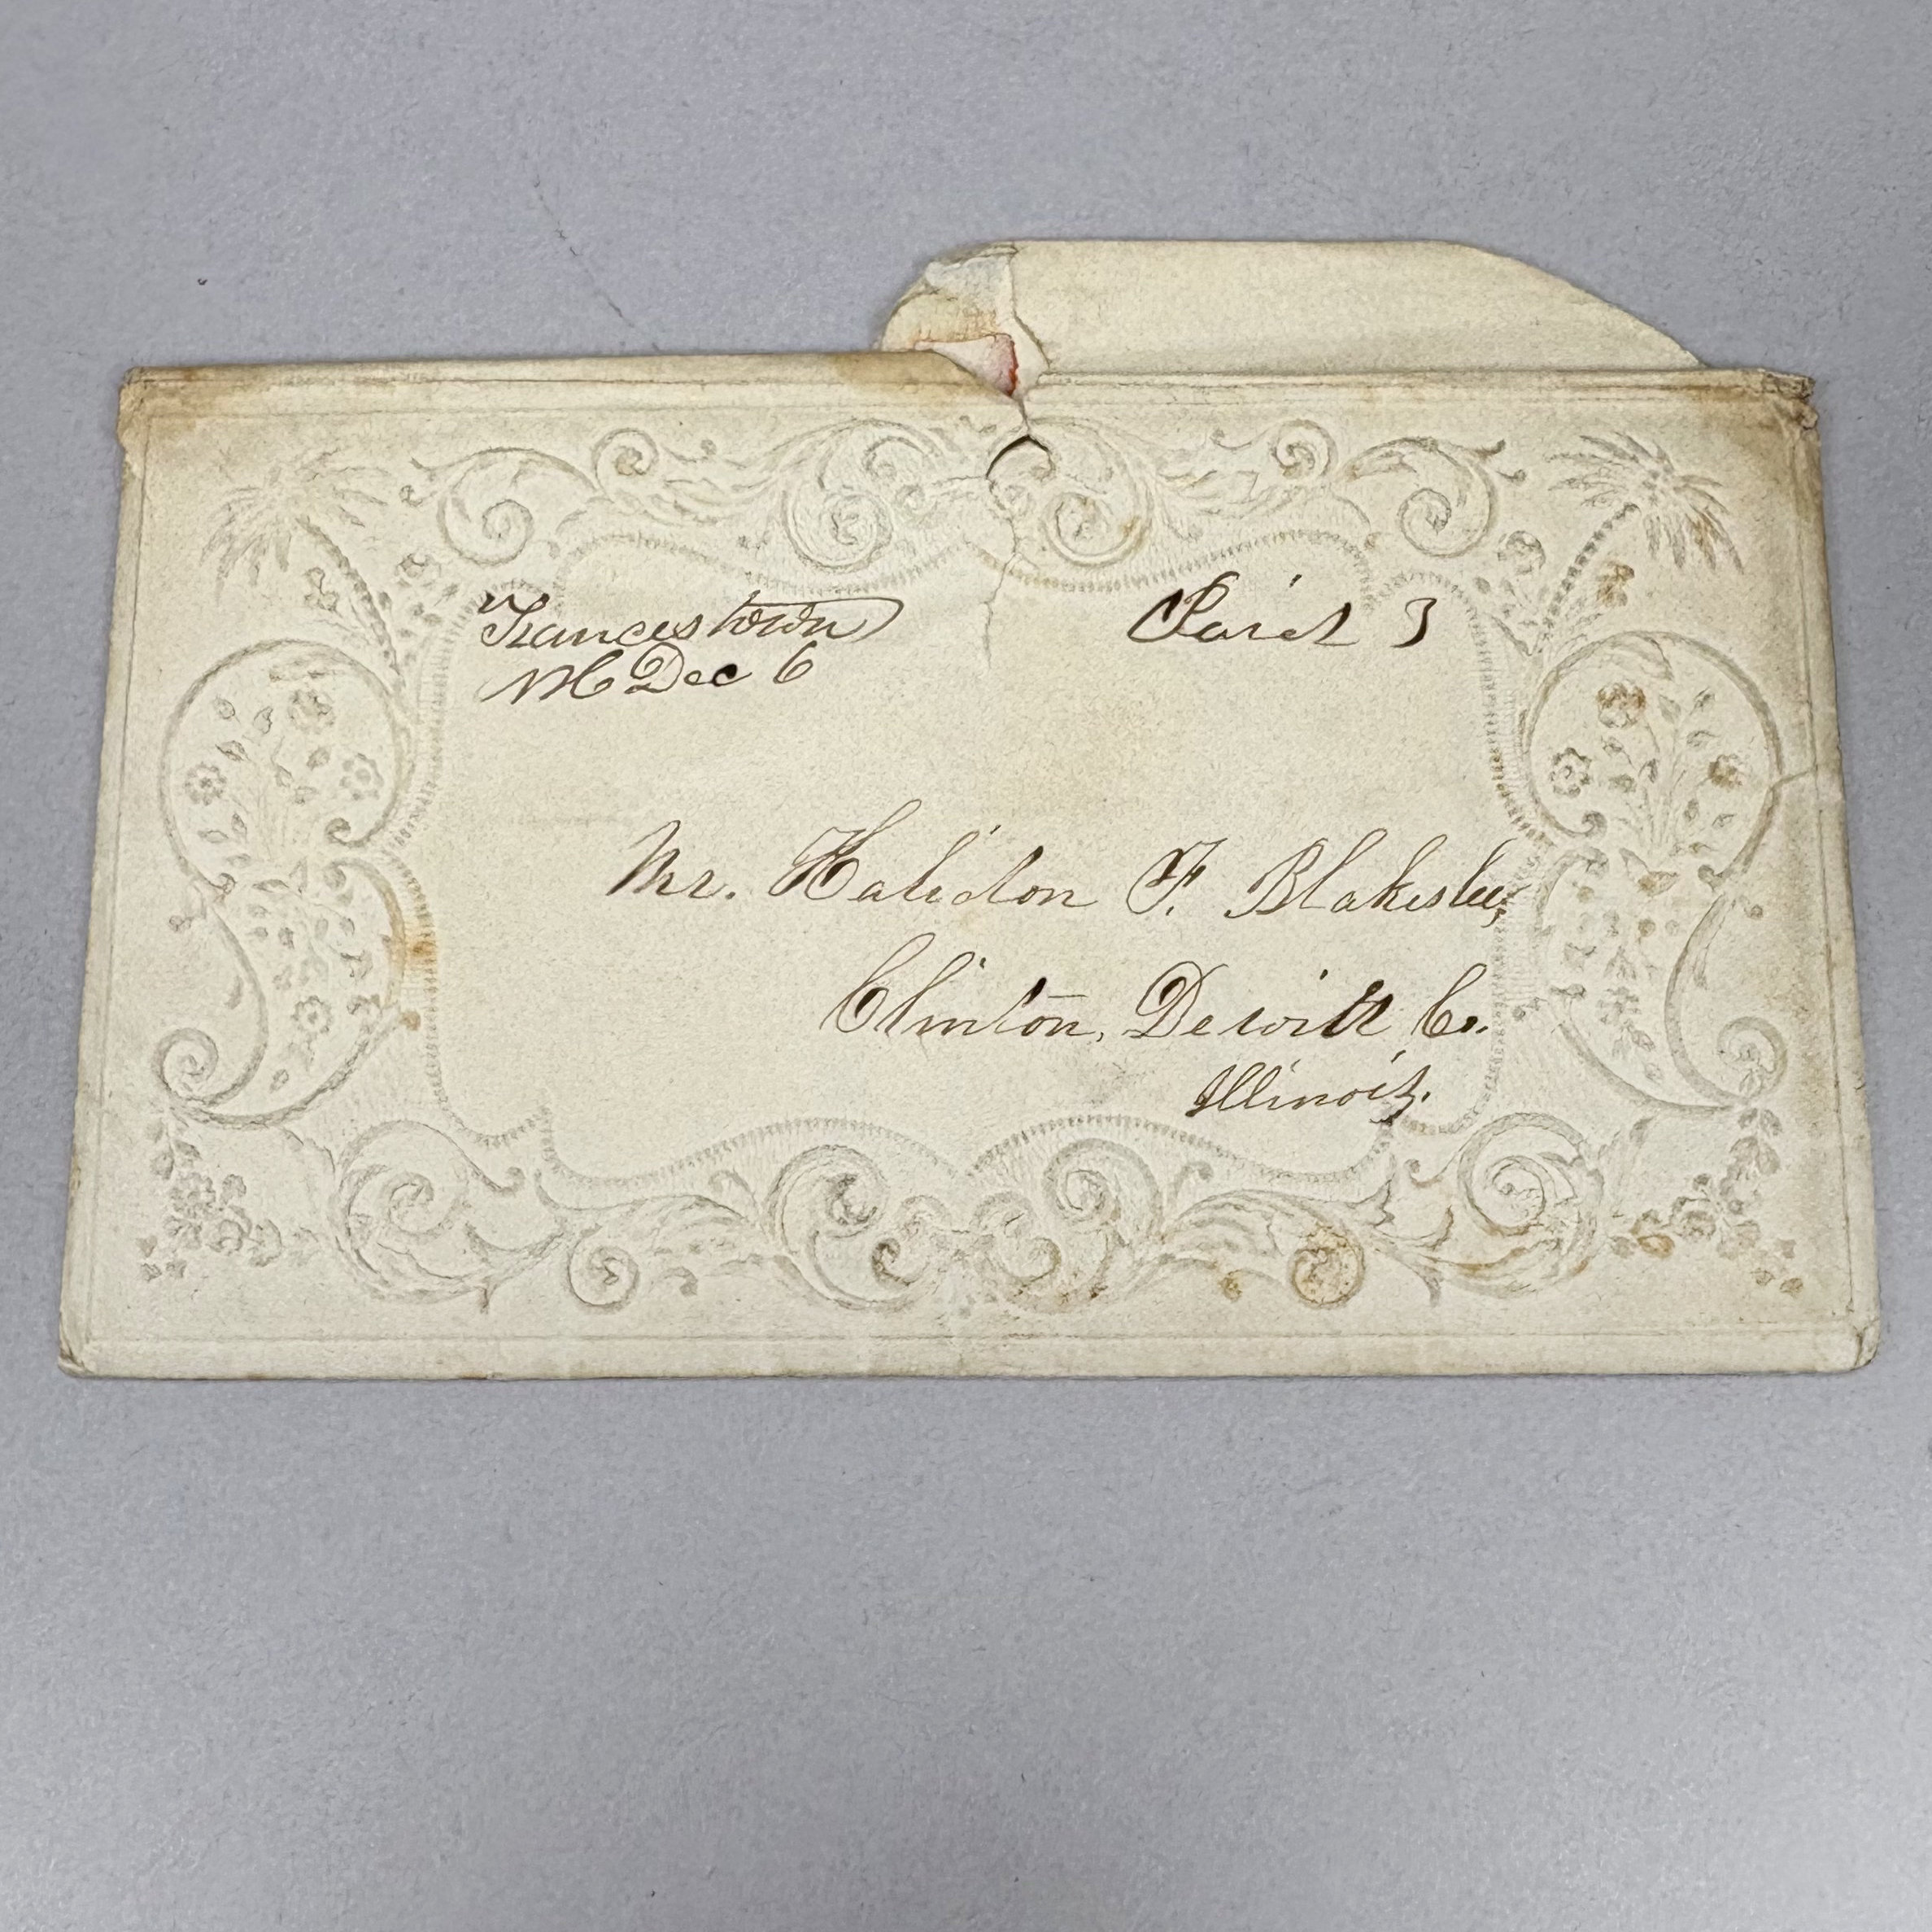 Francestown
NH Dec 6
Paid 3
Mr. Halidon F. Blakeslee,
Clinton, Dewitt Co.
Illinois.